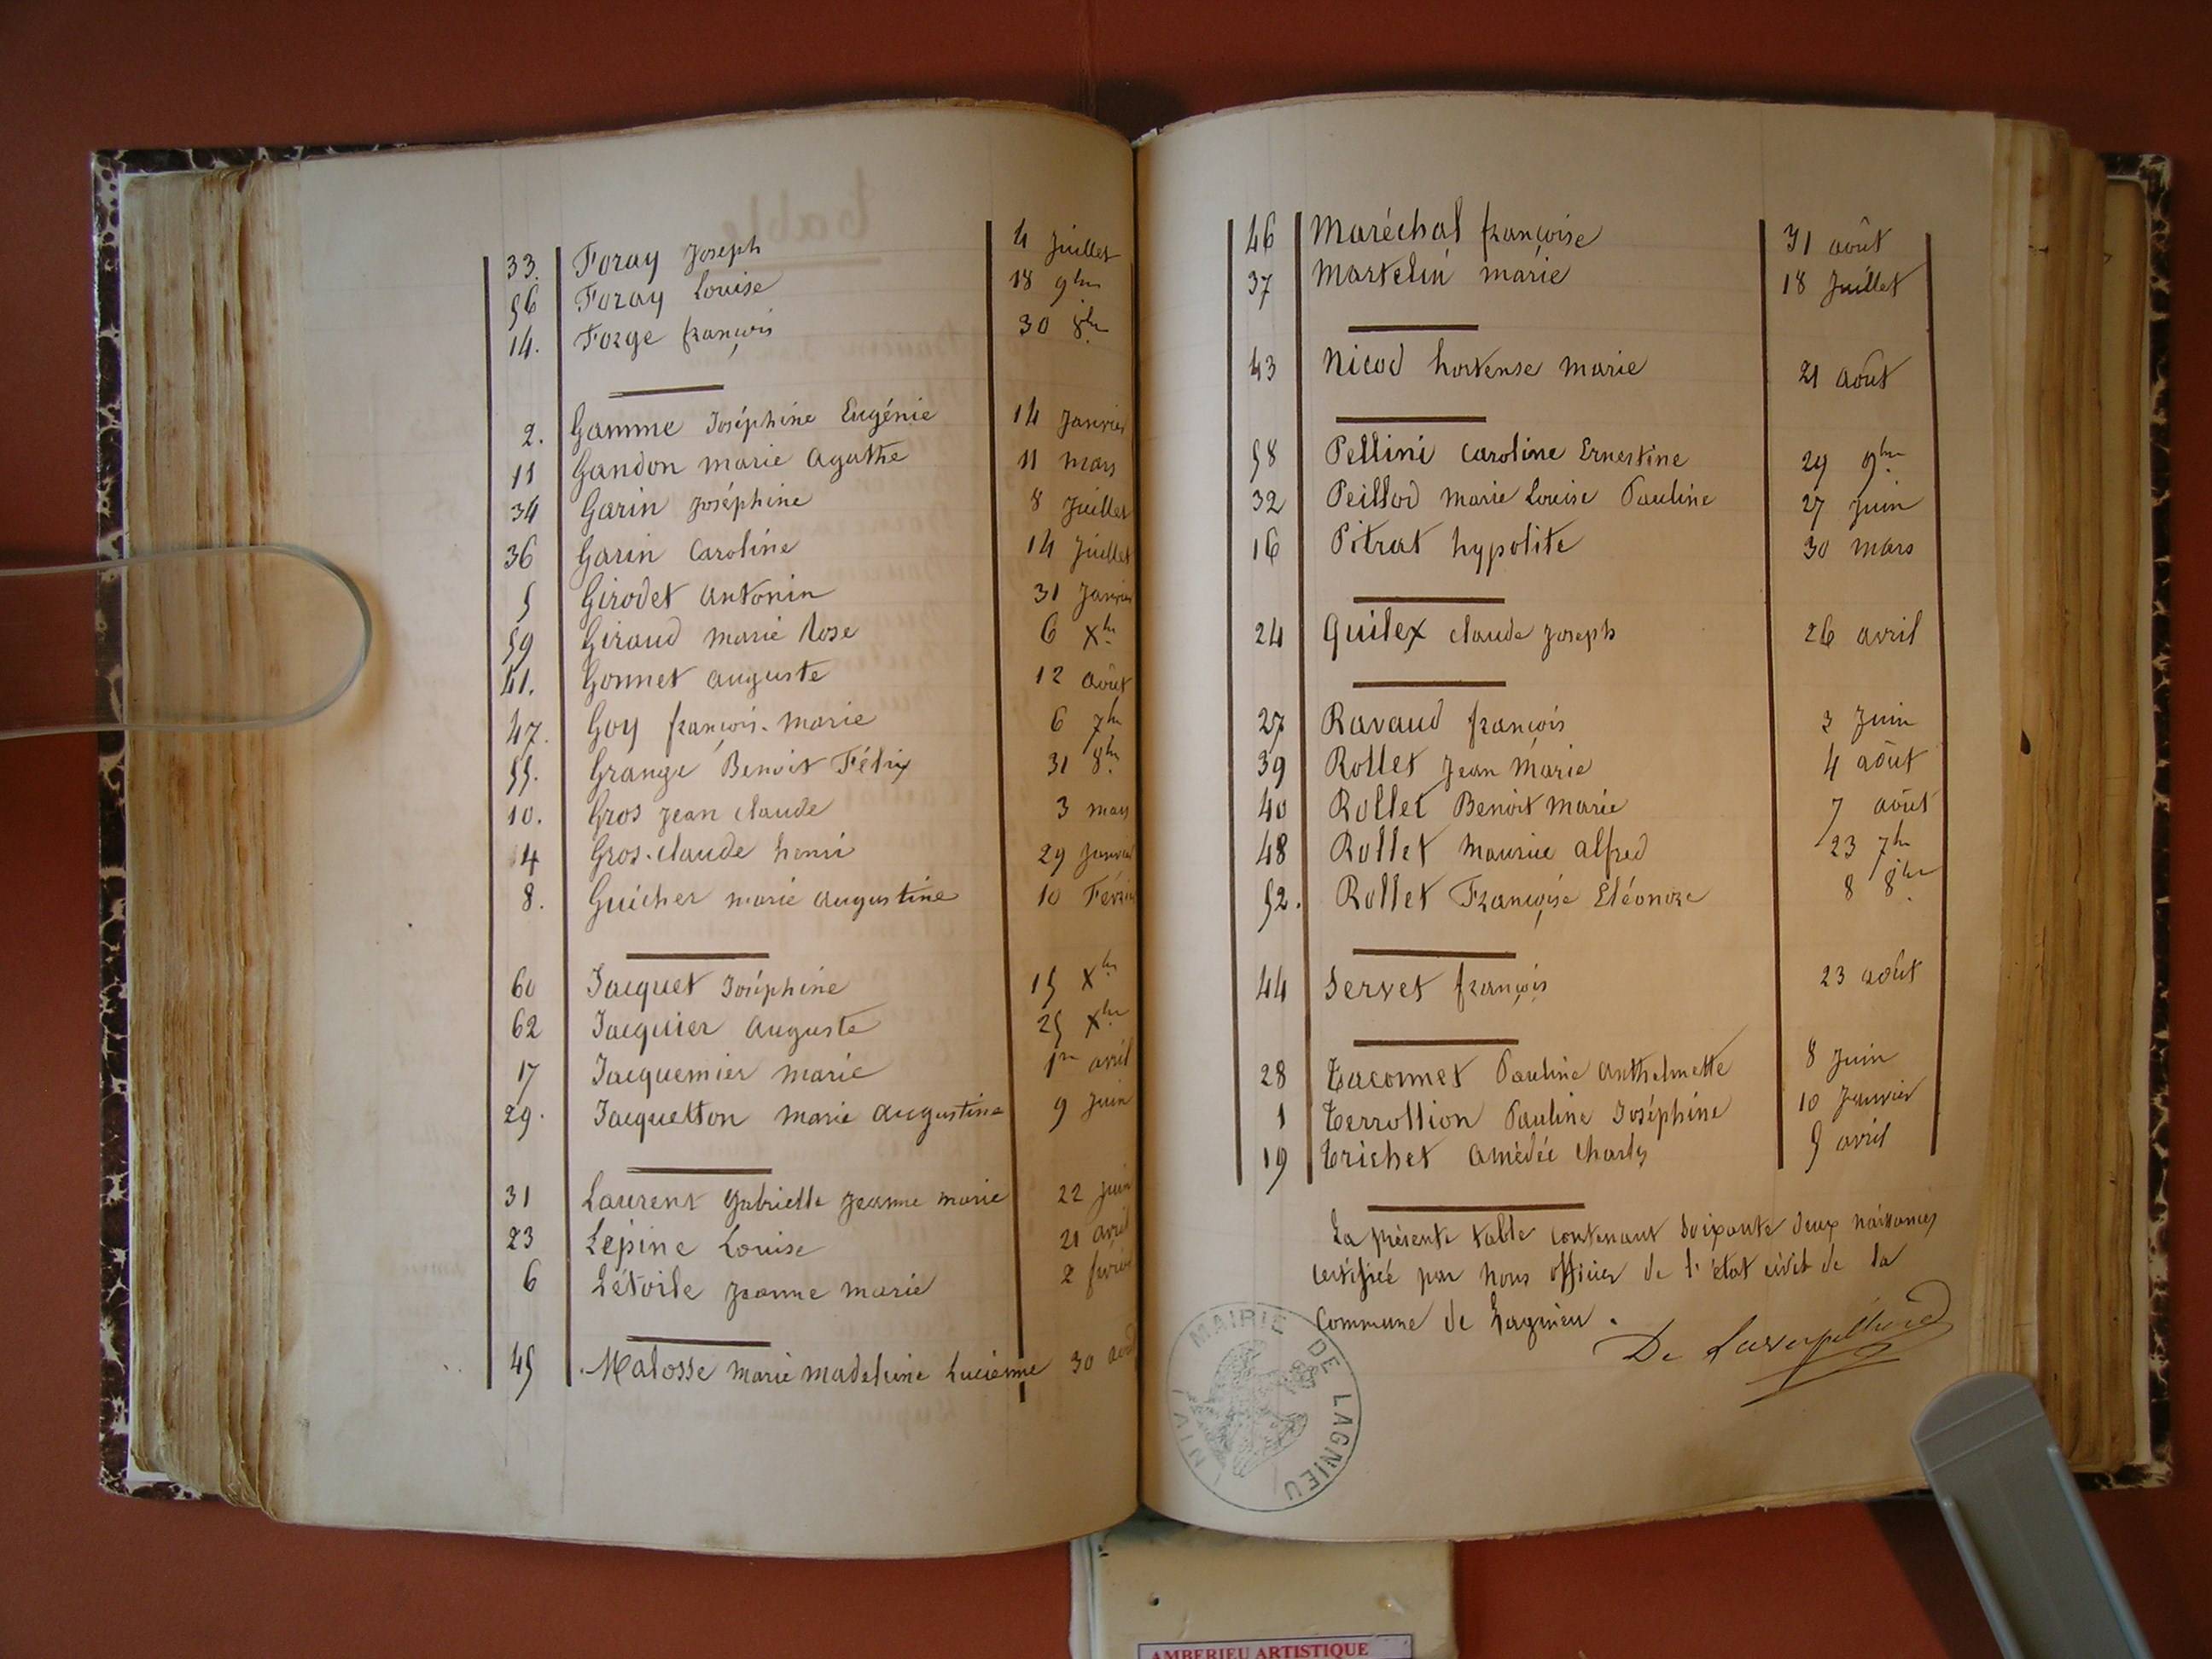 33. Foray Joseph 4 Juillet
56 Foray Louise 18 9bre
14. Forge françois 30 8bre
2. Gamme Joséphine Eugénie 14 Janvier
11 Gandon marie Agathe 11 mars
34 Garin Joséphine 8 Juillet
36 Garin Caroline 14 Juillet
5 Girodet Antonin 31 Janvier
59 Giraud marie Rose 6 Xbre
41. Gonnet auguste 12 août
47. Goy françois-marie 6 7bre
55. Grange Benoit Félix 31 8bre
10. Gros Jean claude 3 mars
4 Gros-claude henri 29 Janvier
8. Guicher marie augustine 10 Février
60 Jacquet Joséphine 15 Xbre
62 Jacquier Auguste 25 Xbre
17 Jacquemier marie 1er avril
29. Jacquetton marie augustine 9 Juin
31 Laurent Gabrielle Jeanne marie 22 Juin
23 Lépine Louise 21 avril
6 Létoile Jeanne marie 2 février
45 Malosse marie madeleine Lucienne 30 août
46 Maréchal françoise 31 août
37 Martelin marie 18 Juillet
43 Nicod hortense marie 21 août
58 Pellini Caroline Ernestine 29 9bre
32 Peillod marie Louise Pauline 27 Juin
16 Pitrat hypolite 30 mars
24 Quilex claude Joseph 26 avril
27 Ravaud françois 3 Juin
39 Rollet Jean Marie 4 août
40 Rollet Benoit marie 7 août
48 Rollet Maurice alfred 23 7bre
52. Rollet Françoise Eléonore 8 8bre
44 Servet françois 23 août
28 Taconnet Pauline Anthelmette 8 Juin
1 Terrollion Pauline Joséphine 10 Janvier
19 Trichet Amédée Charles 5 avril
La présente table contenant soixante deux naissances
certifiée par nous officier de l'état civil de la
Commune de Lagnieu.
MAIRIE DE LAGNIEU
(AIN)
AMBERIEU ARTISTIQUE